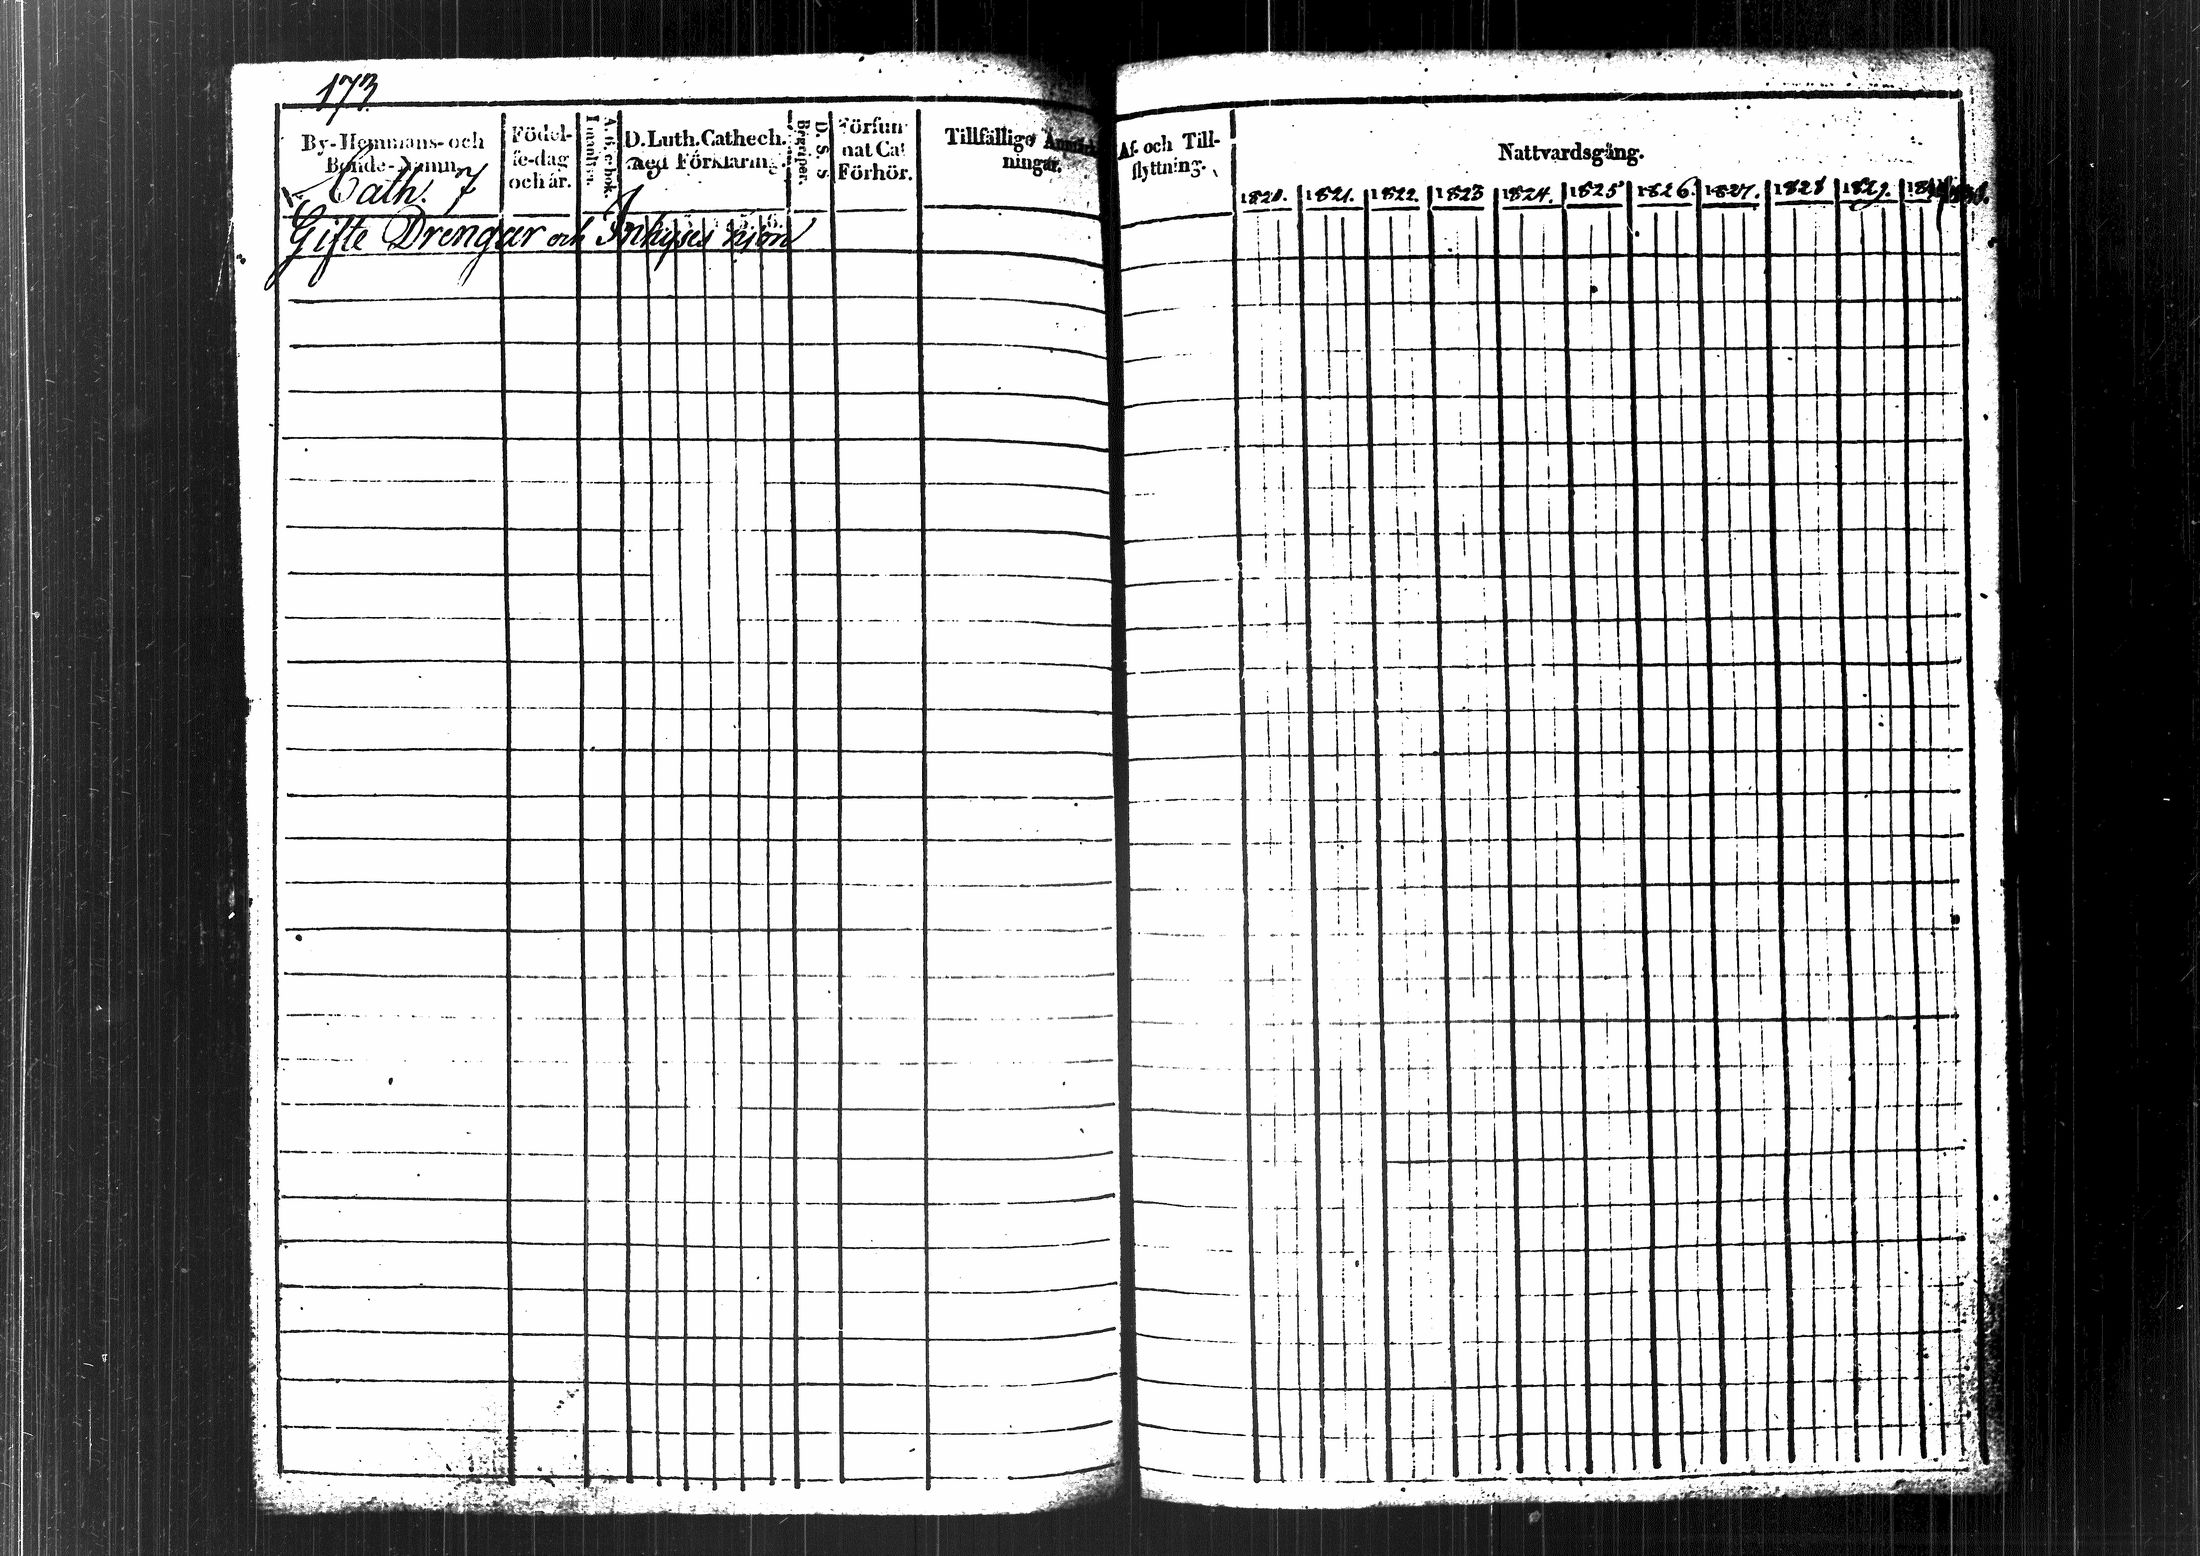 173.
By-Hemmans- och
Bonde-Namn.
Födel-
se-dag
och år.
Innantill.
A. B. c-bok.
D. Luth. Cathech.
med Förklaring
Begriper.
D. S. S
Försum
nat Cat
Förhör.
Tillfällige Anmärk
ningar.
Cath. 7
Gifte Drengar och Inhyses hjon
5 6
Af- och Till-
flyttning.
Nattvardsgång.
1820. 1821. 1822. 1823 1824. 1825 1826. 1827. 1828 1829.